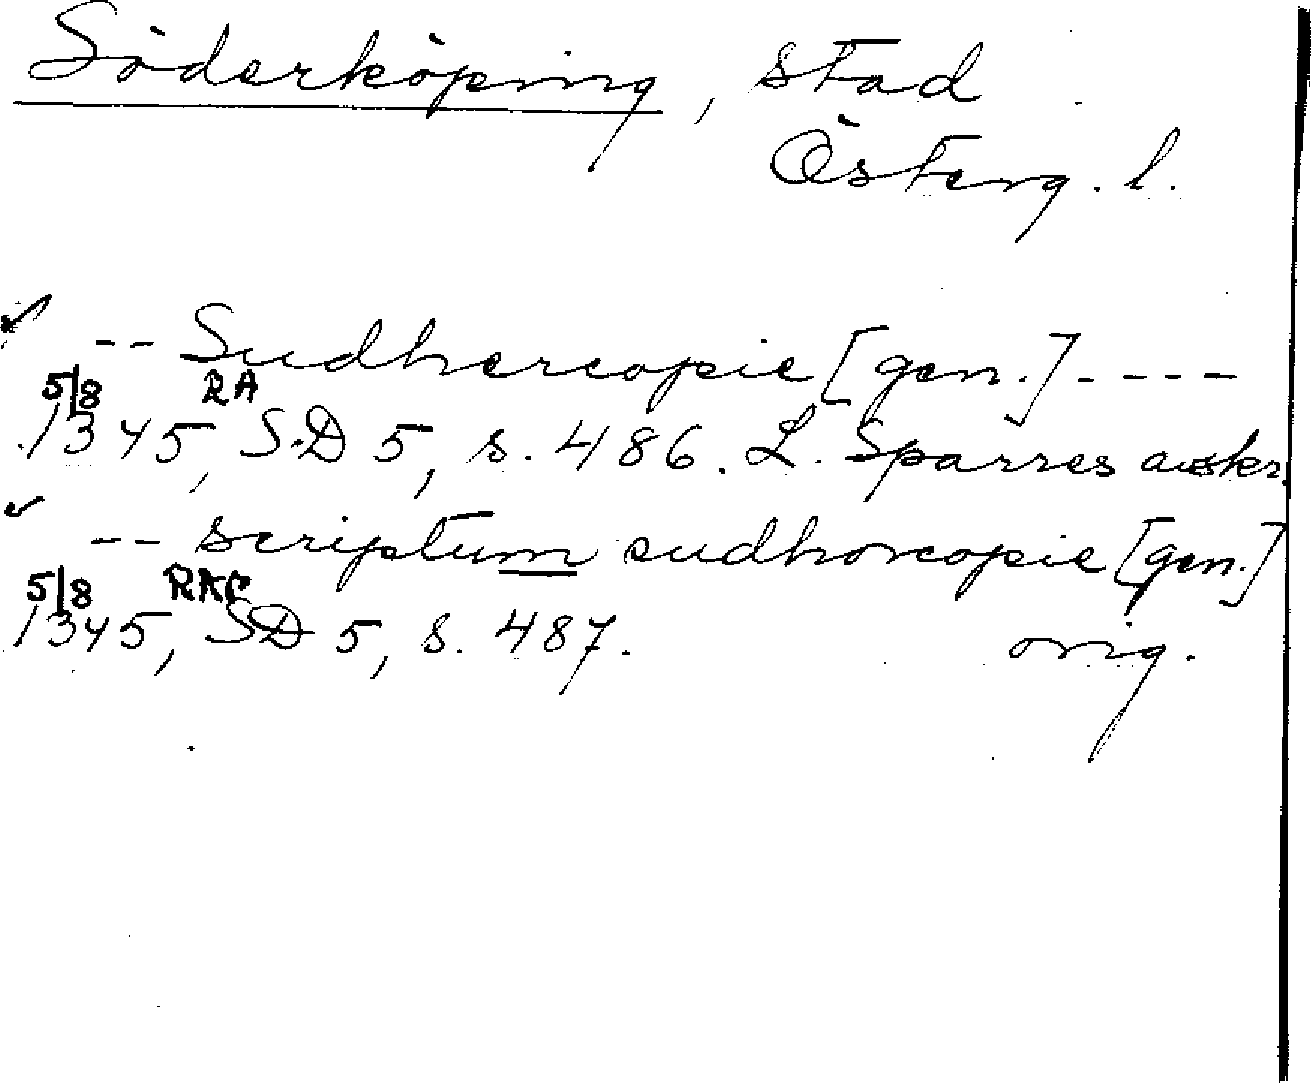 Söderköping, stad
Österg. l.
-- Sudhercopie [gen.] ----
5/8 RA
1345, SD 5, s. 486. L. Sparres avskr.
-- scriptum sudhorcopie [gen.]
5/8
1345, SD 5, s. 487. orig.